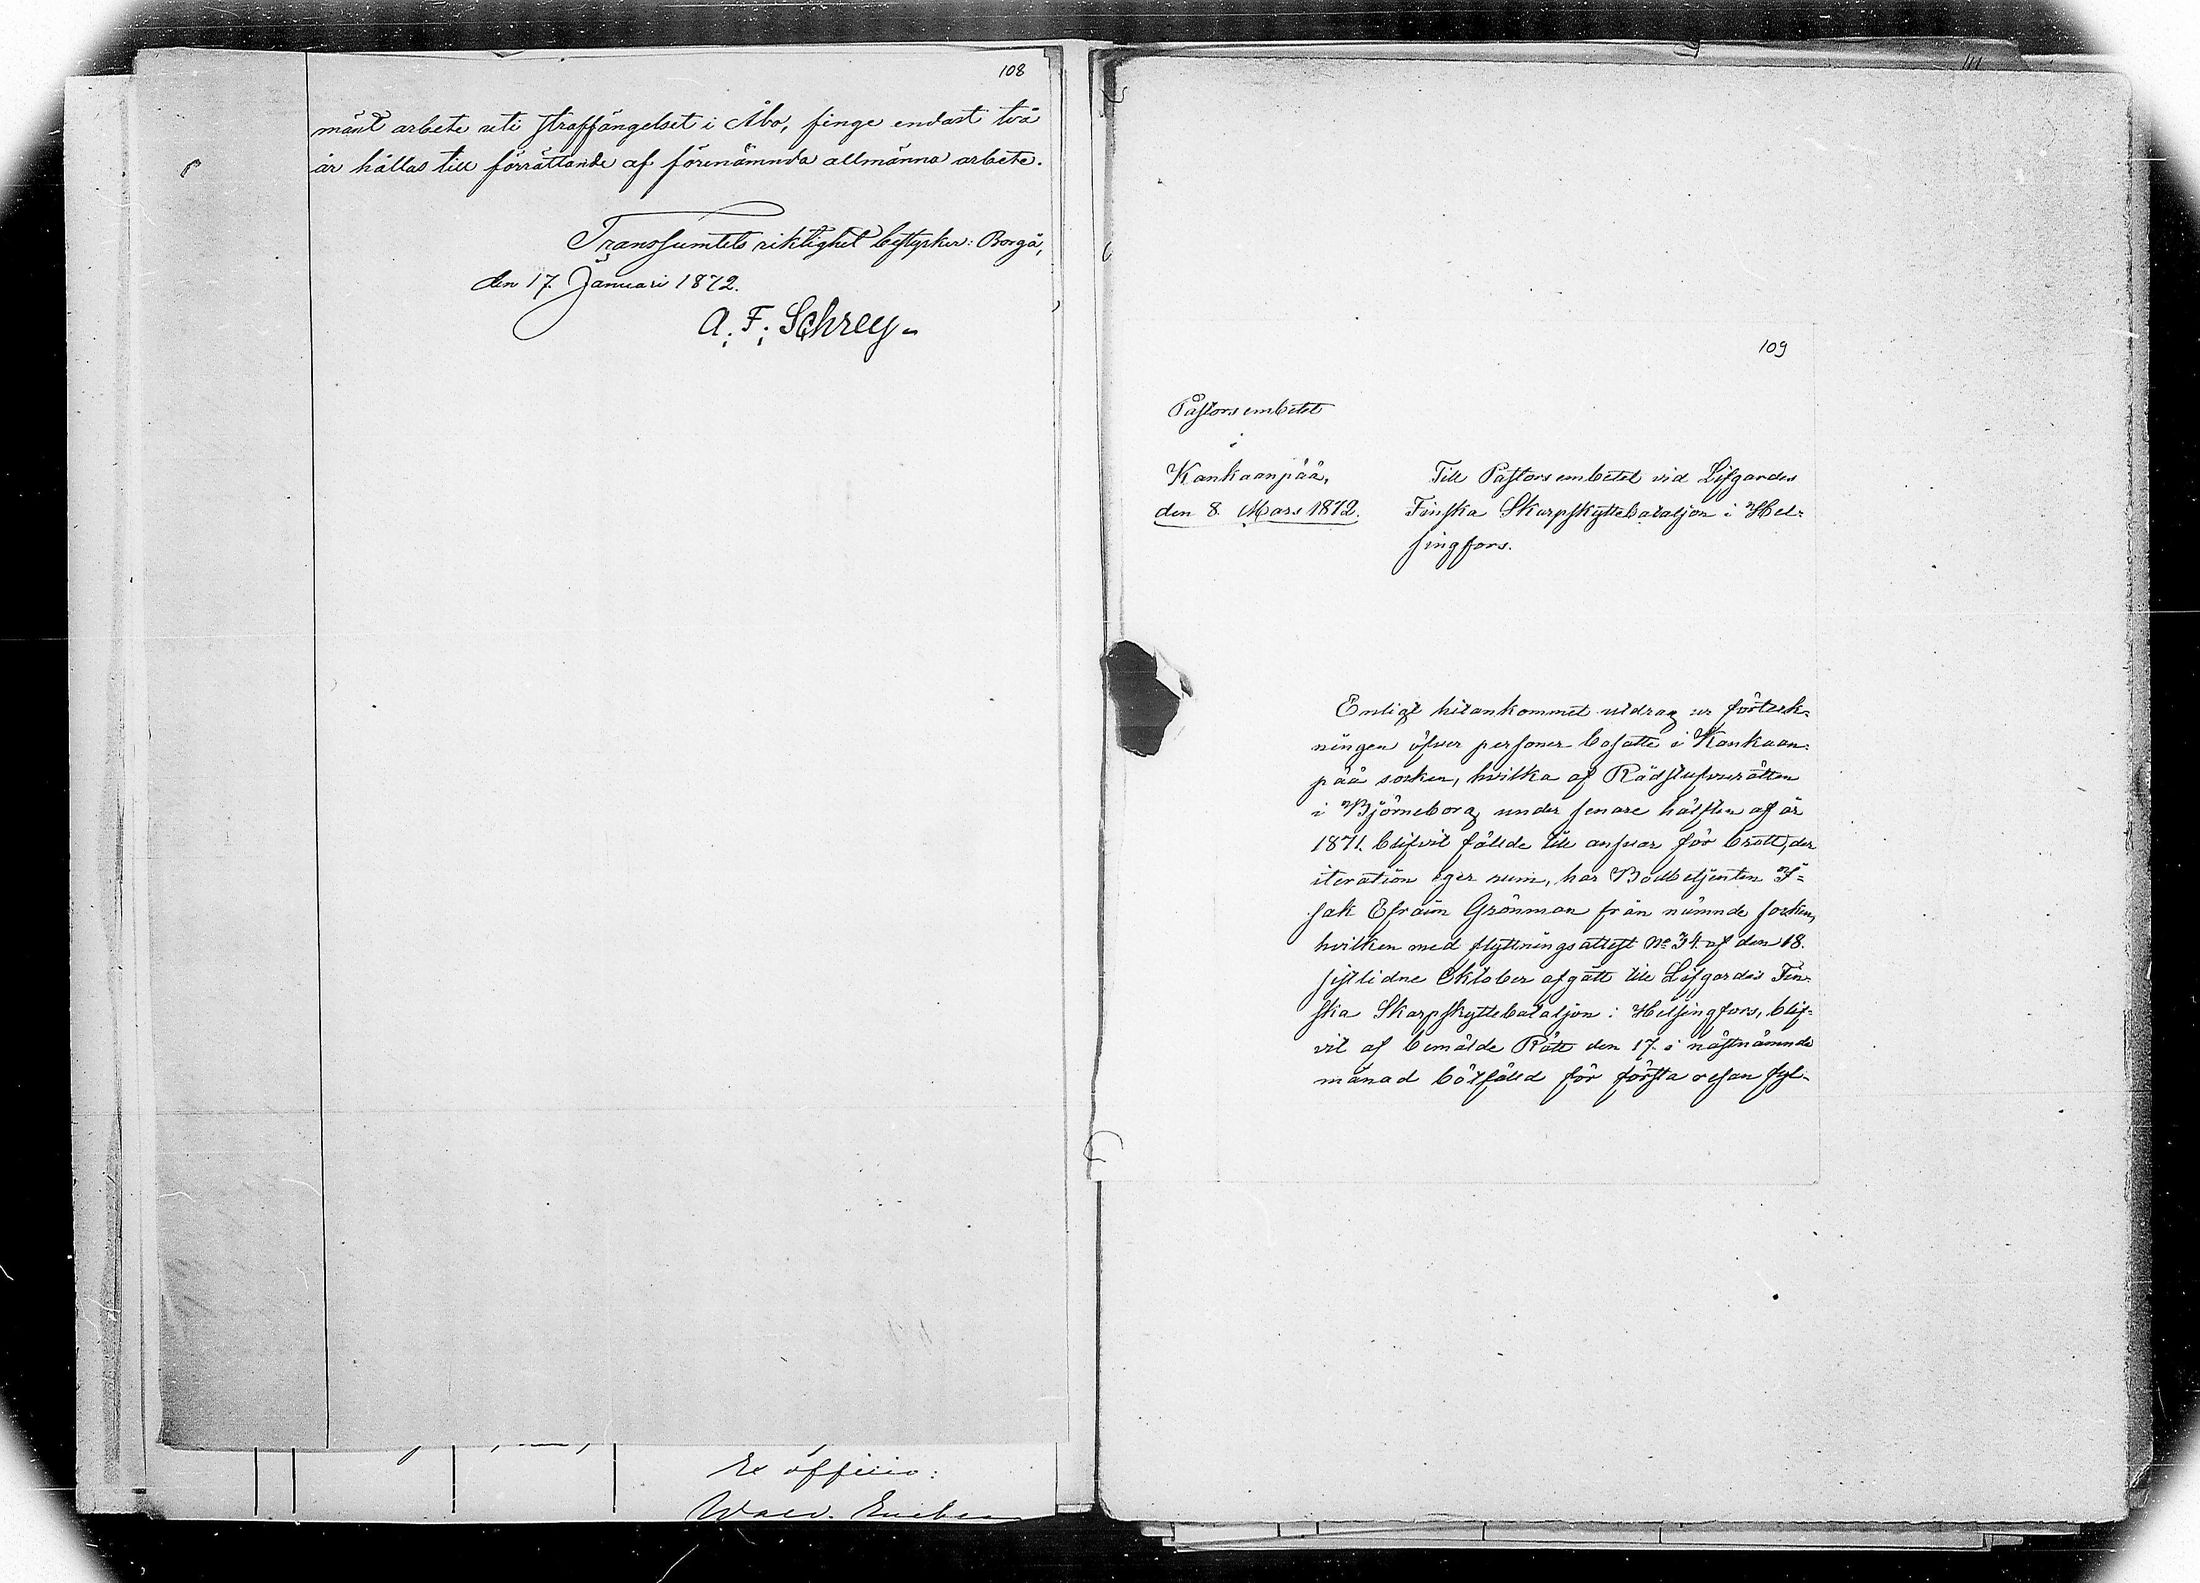 108
mänt arbete uti straffängelset i Åbo, finge endast två
år hållas till förrättande af förenämnda allmänna arbete.
Transsumtets riktighet bestyrker: Borgå,
den 17. Januari 1872.
A. F. Schrey
Ex officio:
109
Pastorsembetet
i
Kankaanpää,
den 8. Mars 1872.
Till Pastorsembetet vid Lifgardes
Finska Skarpskyttebataljon i Hel-
singfors.
Enligt hitankommet utdrag ur förteck-
ningen öfver personer bosatte i Kankaan-
pää socken, hvilka af Rådstufvurätten
i Björneborg under senare hälften af år
1871. blifvit fällde till ansvar för brott, der
iteration eger rum, har Bodbetjenten I-
sak Efraim Grönman från nämnde socken,
hvilken med flyttningsattest No 34. af den 18.
sistlidne Oktober afgått till Lifgardes Fin-
ska Skarpskyttebataljon i Helsingfors, blif-
vit af bemälde Rätt den 17. i nästnämnde
månad bötfälld för första resan fyl-